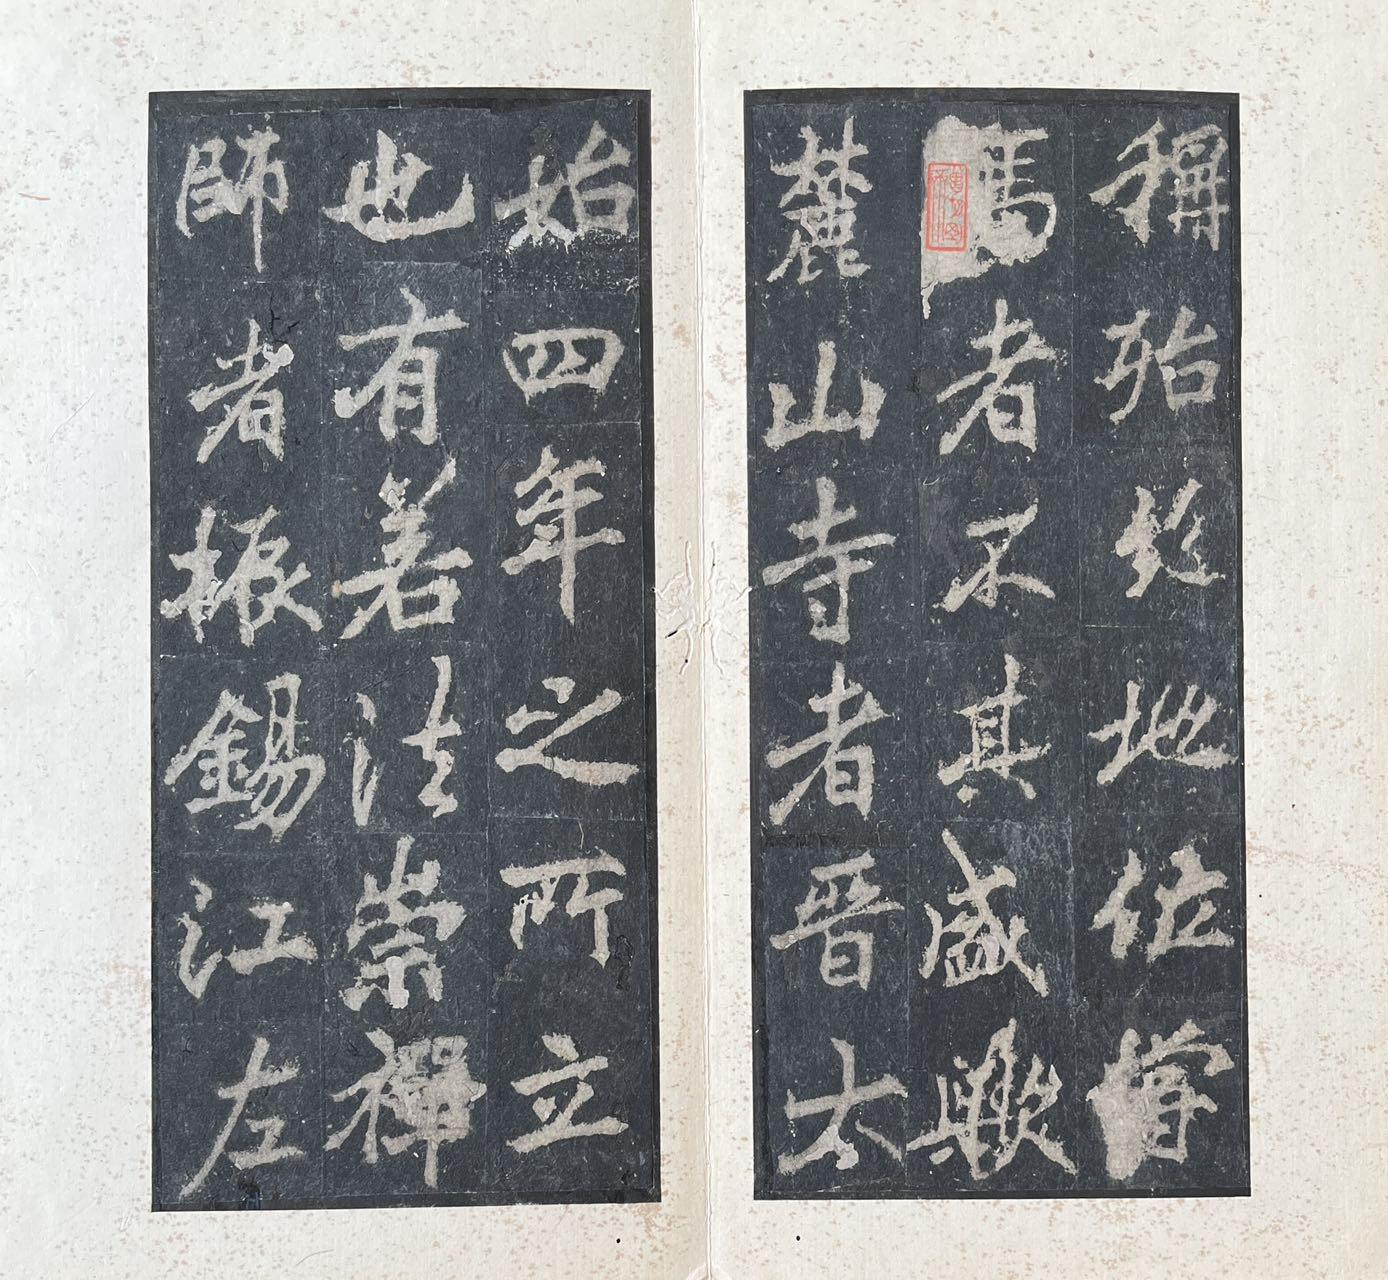 稱殆絕地位嘗
者不其盛歟
麓山寺者晉太
始四年之所立
也有若法崇禪
師者振錫江左